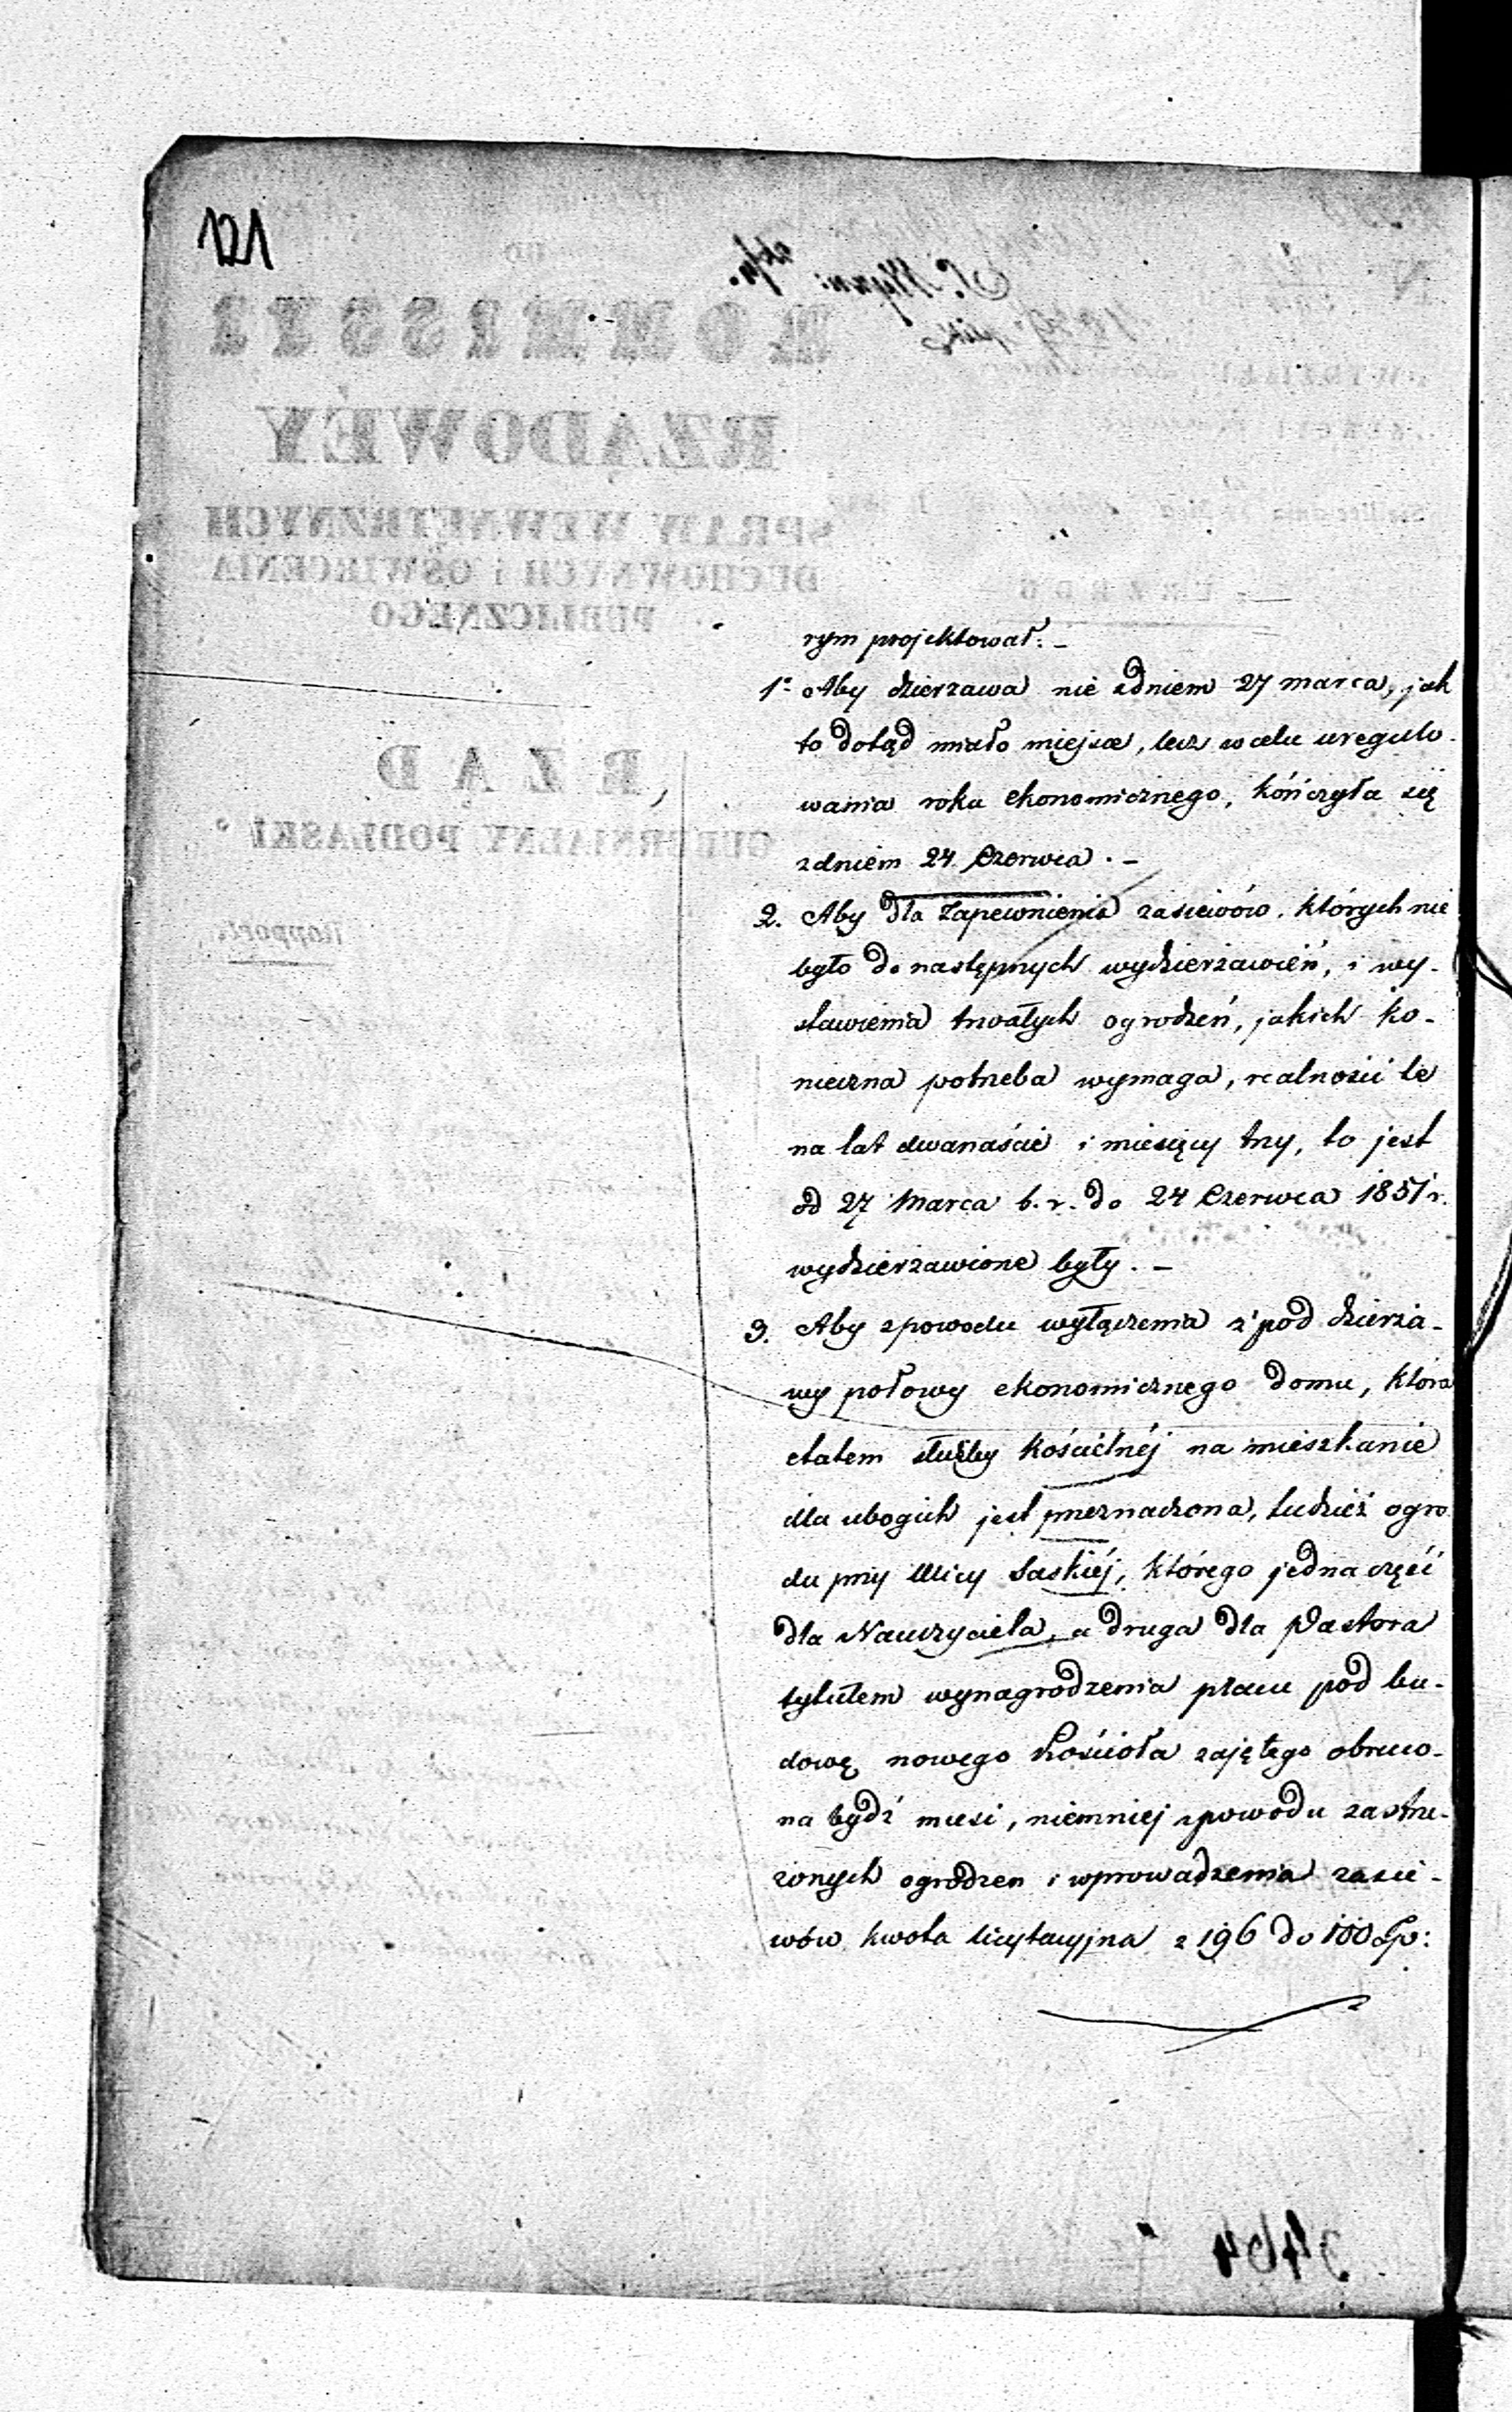 121
rym projektował: —
1° Aby dzierzawa nie zdniem 27 marca, jak
to dotąd miało miejsce, lecz w celu uregulo-
wania roku ekonomicznego, kończyła się
zdniem 24 Czerwca. —
2. Aby dla zapewnienia zasiewów, których nie
było do następnych wydzierzawień, i wy-
stawienia trwałych ogrodzeń, jakich ko-
nieczna potrzeba wymaga, realności te
na lat dwanaście i miesięcy trzy, to jest
od 27 Marca b. r. do 24 Czerwca 1851 r.
wydzierzawione były. —
3. Aby zpowodu wyłączenia z pod dzierza-
wy połowy ekonomicznego domu, która
etatem służby kościelnéj na mieszkanie
dla ubogich jest przeznaczona, tudzież ogro
du przy Ulicy Saskiéj, którego jedna część
dla Nauczyciela, a druga dla Pastora
tytułem wynagrodzenia placu pod bu-
dowę nowego Kościoła zajętego obruco-
na bydź musi, niemniej zpowodu zastrze-
żonych ogrodzen i wprowadzenia zasie-
wów kwota licytacyjna z 196 do 100 Złp: